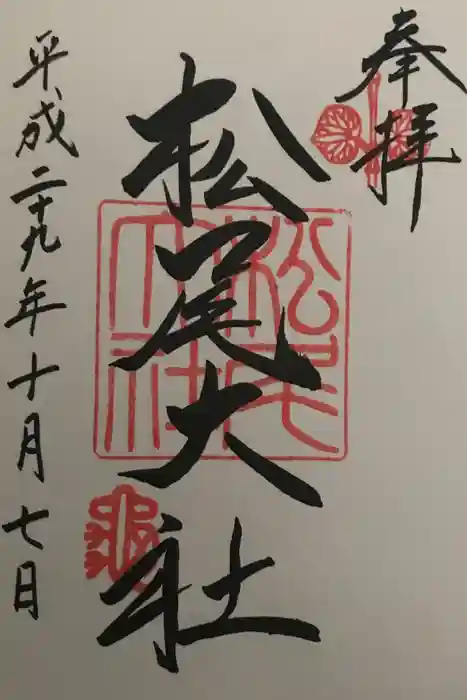 奉拝
松尾大社
松尾大社
平成二十九年十月七日